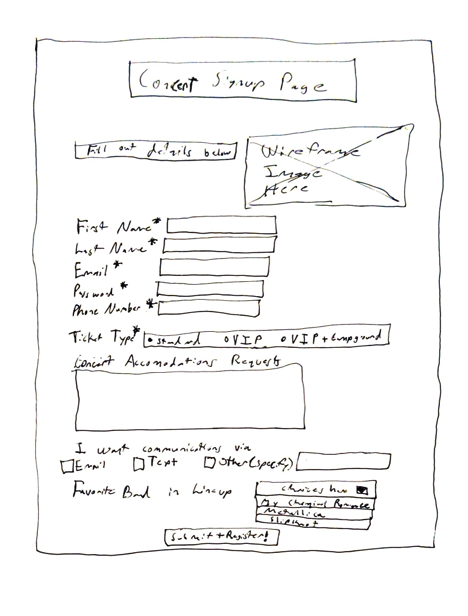 Concert Signup Page
Fill out details below
Wireframe
Image
Here
First Name*
Last Name*
Email*
Password*
Phone Number*
Ticket Type* standard VIP VIP + Campground
Concert Accomodations Requests
I want communications via
Email Text Other (specify)
Favorite Band in Lineup
choices here
My Chemical Romance
Metallica
Slipknot
Submit + Register!